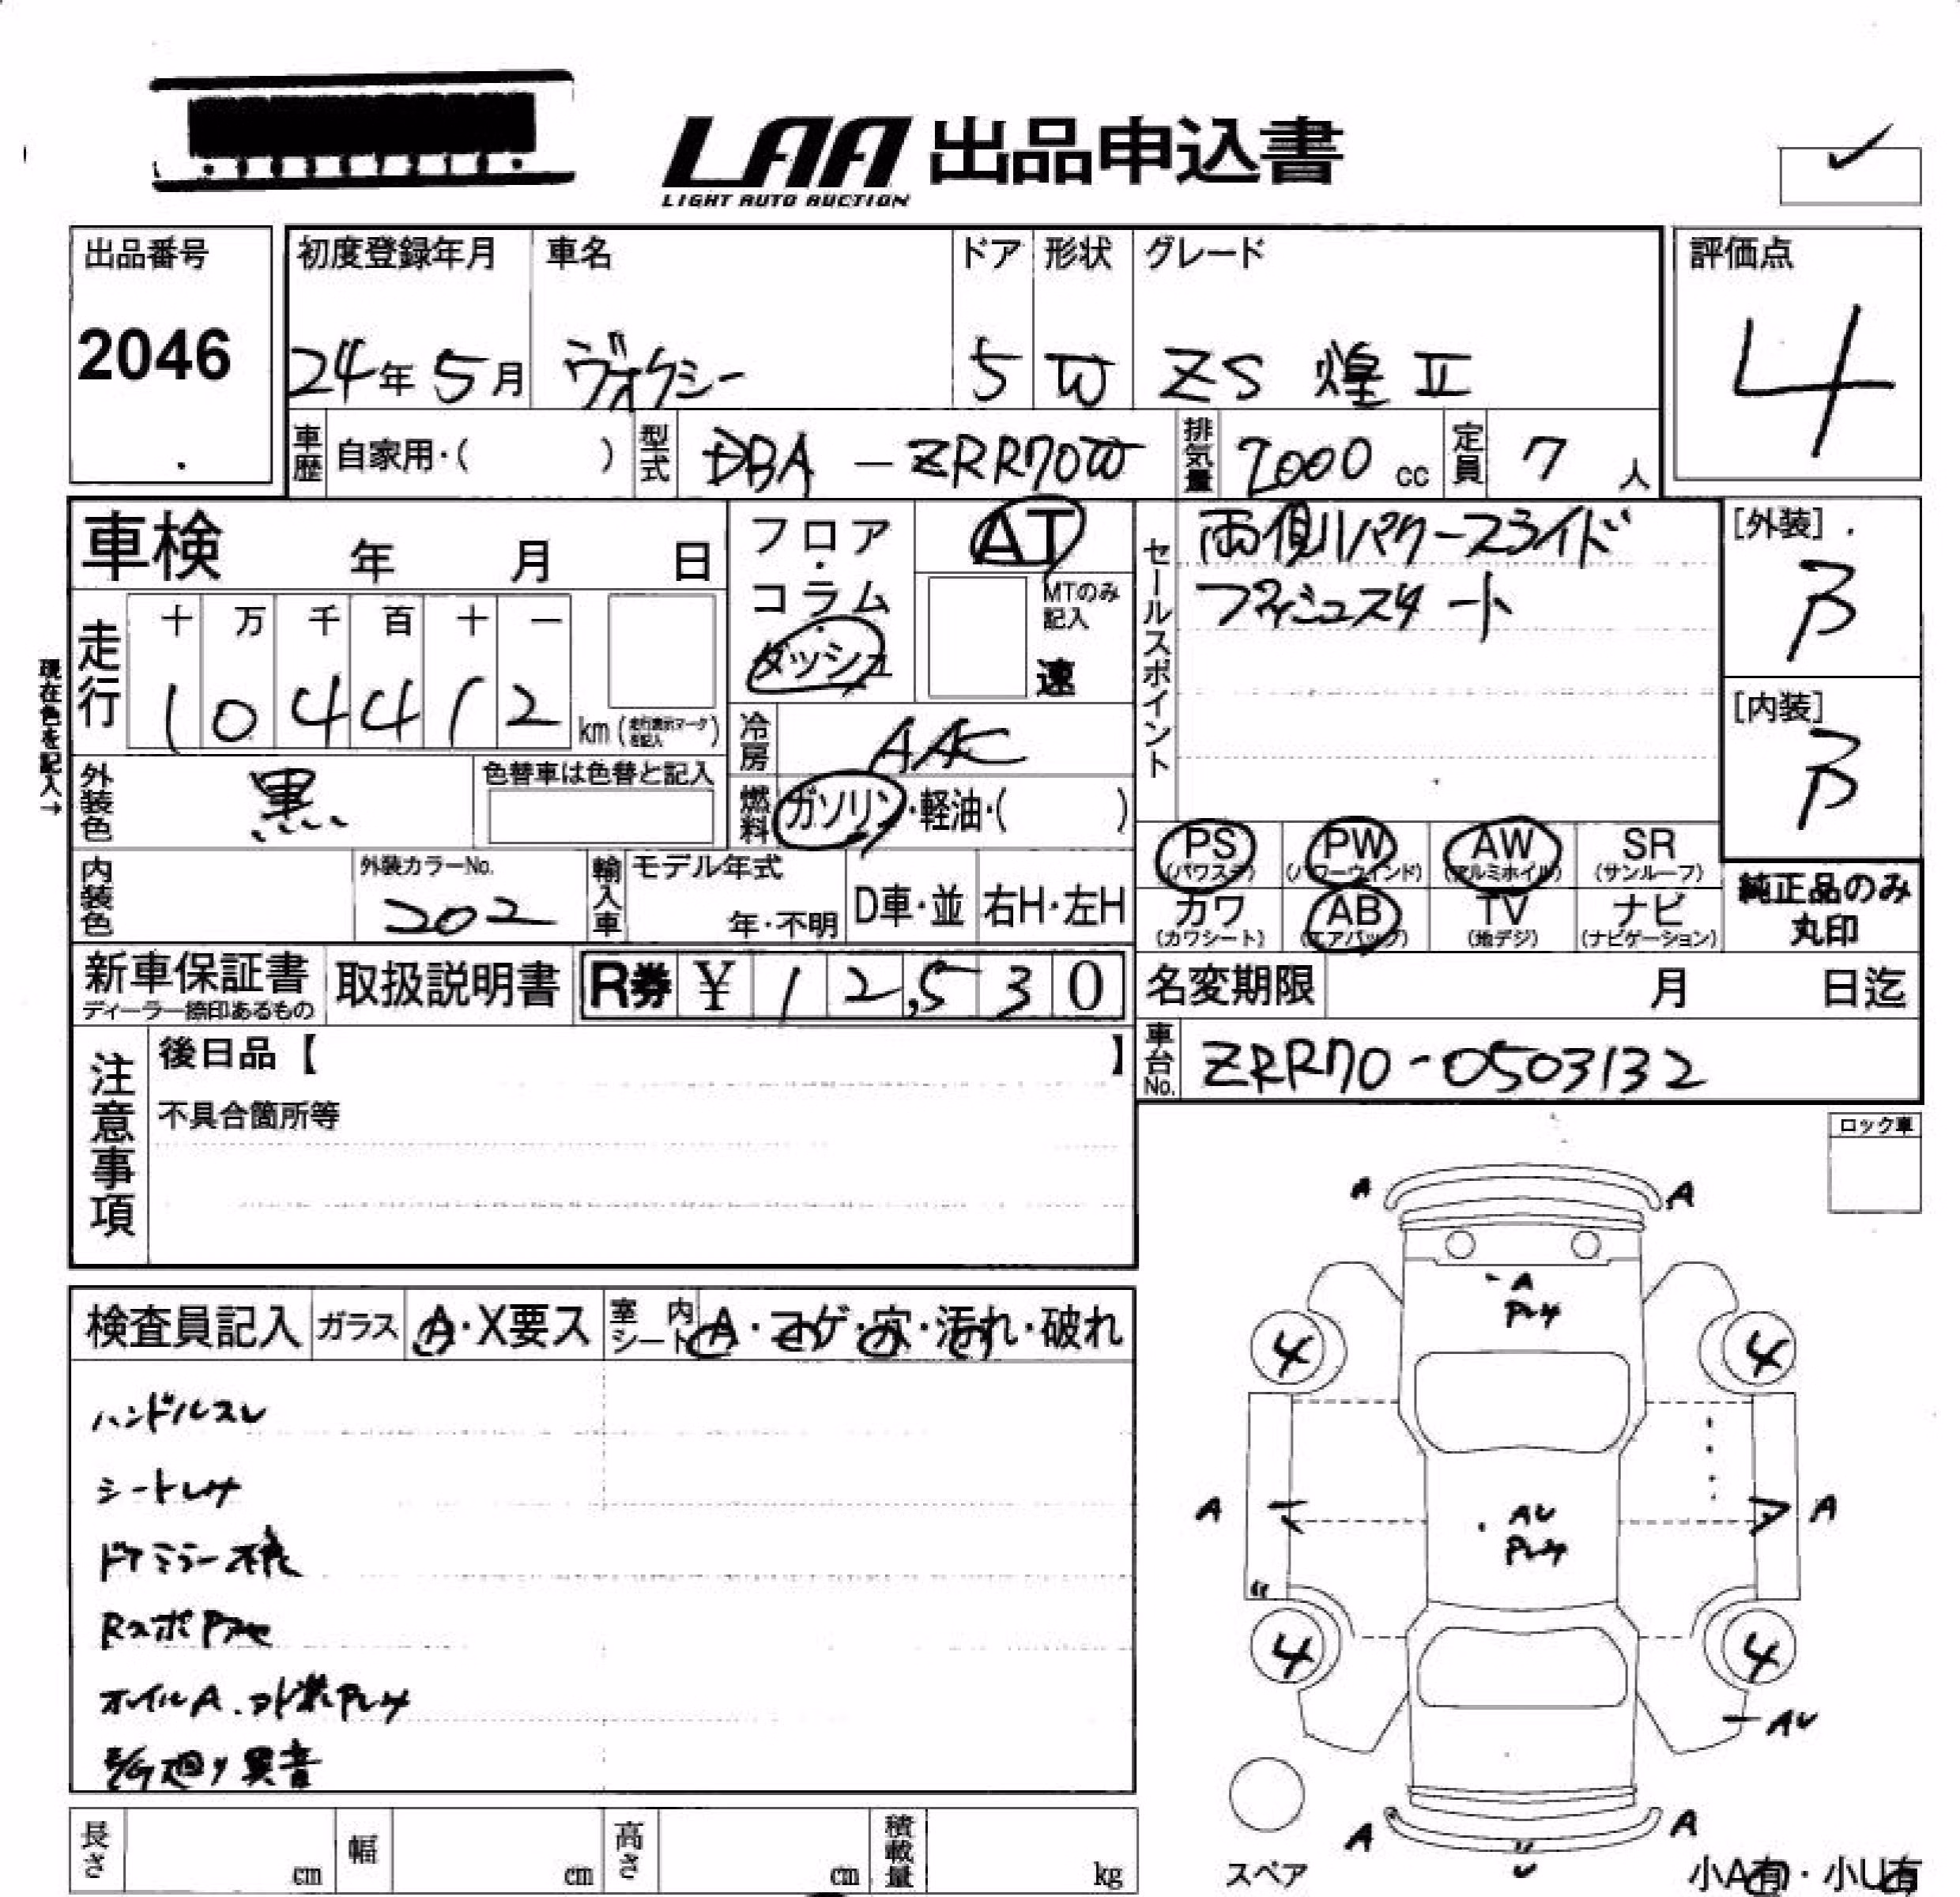 LAA 出品申込書
LIGHT AUTO AUCTION
出品番号
2046
初度登録年月 車名 ドア 形状 グレード
24年 5月 ヴォクシー 5 W ZS 煌 II
評価点
4
車歴 自家用・( ) 型式 DBA - ZRR70W 排気量 2000 cc 定員 7 人
車検 年 月 日
フロア・コラム・ダッシュ
AT
MTのみ記入
速
セールスポイント
両側パワースライド
[外装]
B
[内装]
B
現在色を記入→
走行 十 万 千 百 十 一
1 0 4 4 1 2 km (走行表示マークを記入)
冷房 AAC
外装色 黒 色替車は色替と記入
燃料 ガソリン・軽油・( )
PS (パワステ) PW (パワーウインド) AW (アルミホイル) SR (サンルーフ)
カワ (カワシート) AB (エアバッグ) TV (地デジ) ナビ (ナビゲーション)
純正品のみ
丸印
内装色 外装カラーNo. 202 輸入車 モデル年式 年・不明 D車・並 右H・左H
新車保証書 ディーラー捺印あるもの 取扱説明書 R券 ¥ 12,530
名変期限 月 日迄
車台No. ZRR70-0503132
注意事項
後日品【 】
不具合箇所等
ロック車
検査員記入 ガラス A・X要ス 室内シート A・コゲ・穴・汚れ・破れ
ハンドルスレ
シートレサ
ドアミラー不良
オイルA.
異音
A A
A
4 4
A AU A
4 4
AU
A A
U
スペア
小A有・小U有
長さ cm 幅 cm 高さ cm 積載量 kg